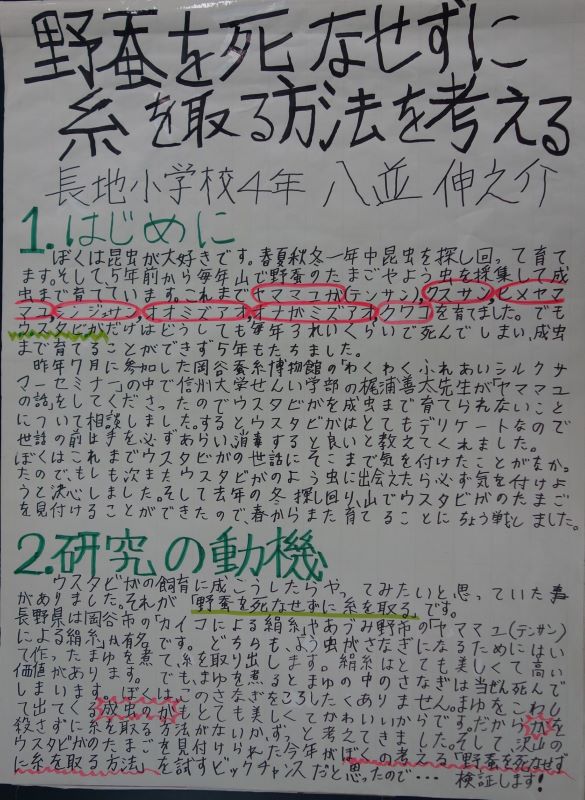 野蚕を死なせずに
糸を取る方法を考える
長地小学校4年 八並 伸之介
1.はじめに
ぼくは昆虫が大好きです。春夏秋冬一年中昆虫を探し回って育て
ます。そして5年前から毎年山で野蚕のたまごやよう虫を採集して成
虫まで育てています。これまでヤママユガ(テンサン)、クスサン、ヒメヤマ
マユ、シンジュサン、オオミズアオ、オナガミズアオ、クワコを育てました。でも
ウスタビガだけはどうしても毎年3れいくらいで死んでしまい、成虫
まで育てることができず5年もたちました。
昨年7月に参加した岡谷蚕糸博物館の「わくわくふれあいシルクサ
マーセミナー」の中で信州大学せんい学部の梶浦善太先生が「ヤママユ
の話」をしてくださったのでウスタビガを成虫まで育てられないこと
について相談しました。するとウスタビガはとてもデリケートなので
世話の前は手を必ずあらい、消毒すると良いと教えてくれました。
ぼくはこれまでウスタビガの世話にそこまで気を付けたことがなか。
たので、もしも次またウスタビガのよう虫に出会えたら必ず気を付けよ
うと決心しました。そして去年の冬探し回り、山でウスタビガのたまご
を見付けることができたので、春からまた育てることにちょう戦しました。
2.研究の動機
ウスタビガの飼育に成こうしたらやってみたいと思っていた事
がありました。それが「野蚕を死なせずに糸を取る」です。
長野県は岡谷市の「カイコによる絹糸」やあづみ野市の「ヤママユ(テンサン)
による絹糸」が有名です。どちらも、よう虫がさなぎになるためにはい
て作ったまゆを煮て、糸を取り出します。絹糸はとても美しくて高い
価値があります。でも、まゆを煮るとまゆの中のさなぎは当ぜん死んで
しまいます。ぼくは、このさなぎをころしたくありません。まゆをこわし
て出てくる成虫のガもとても美しくてかわいいからです。だからガを
殺さずに糸を取る方法がないか、ずっと考えてきました。そして沢山の
ウスタビガのたまごを見付けられた今年がぼくの考える「野蚕を死なせず
に糸を取る方法」を試すビックチャンスだと思ったので… 検証します!